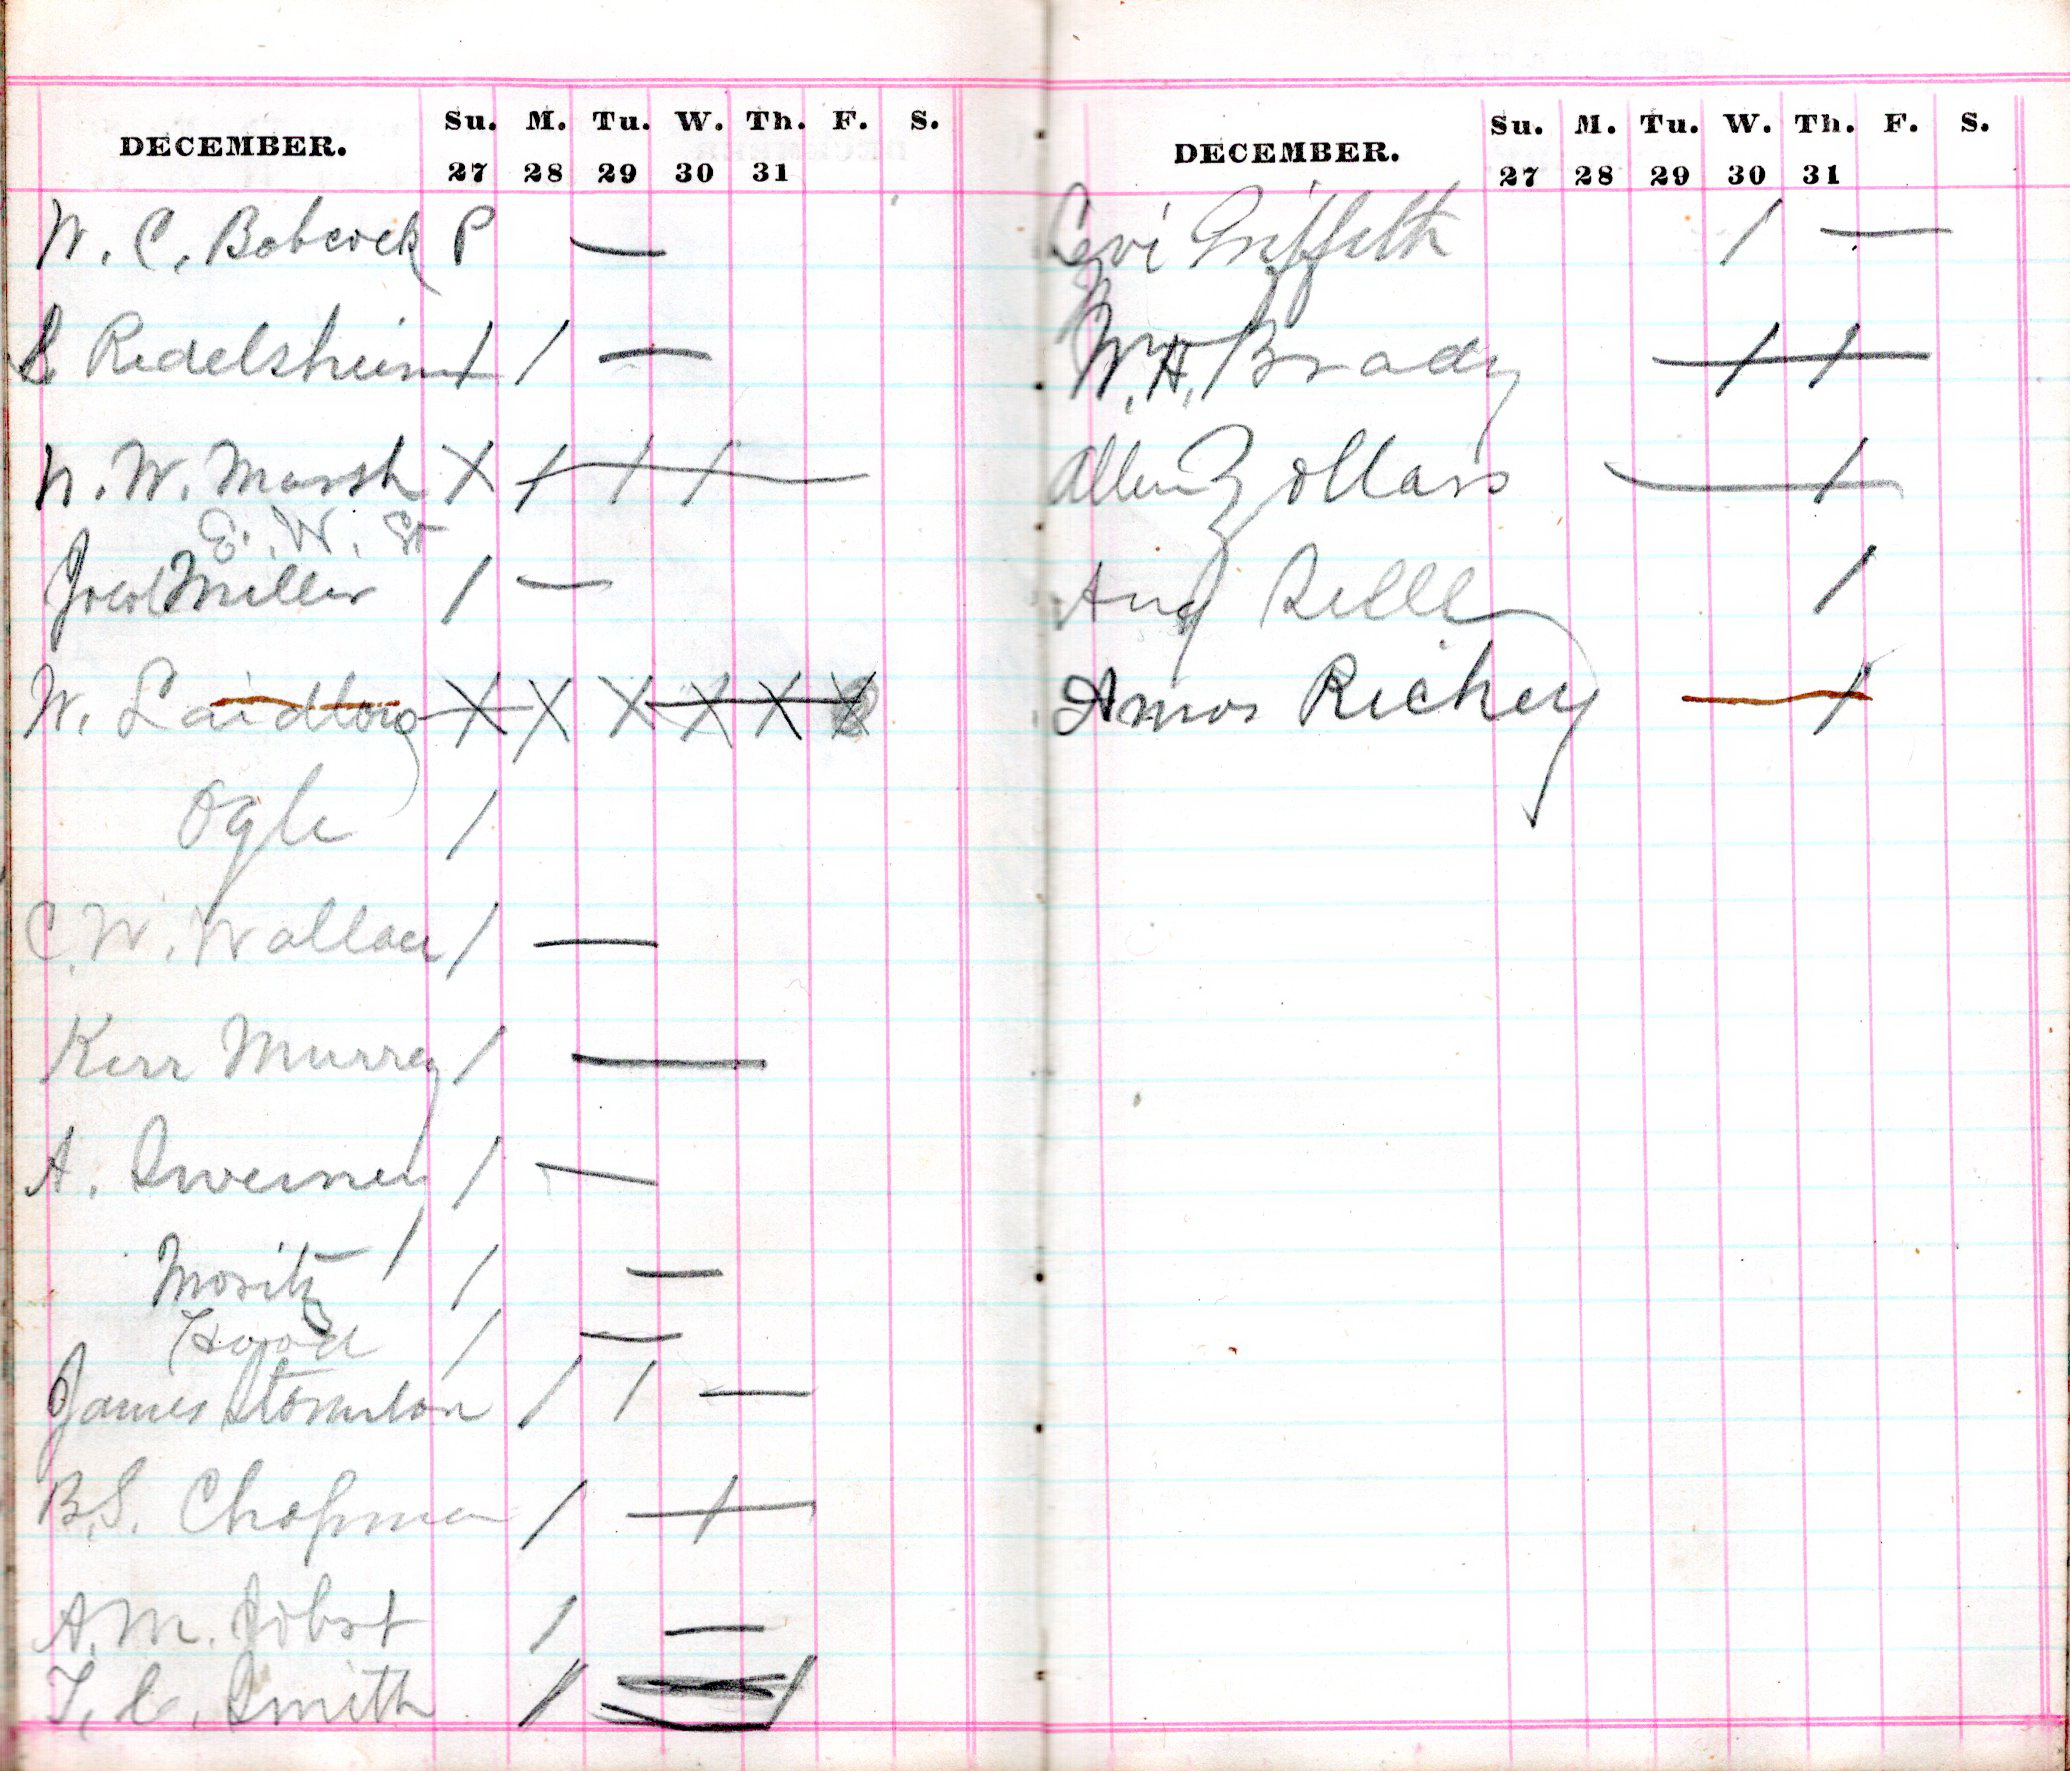 DECEMBER. Su. M. Tu. W. Th. F. S.
27 28 29 30 31
W. C. Babcock P
L Redelsheim
N. W. Marsh
E. W. St
Miller
W. Laidlow
Ogle
C. W. Wallace
Kerr Murrey
A. Sweiney
Moritz
Hood
James Stornlon
B. S. Chapman
A. M. Jobst
T. C. Smith
DECEMBER. Su. M. Tu. W. Th. F. S.
27 28 29 30 31
Levi Griffeth
W. H. Brady
Allen Zollars
Aug Selle
Amos Richey